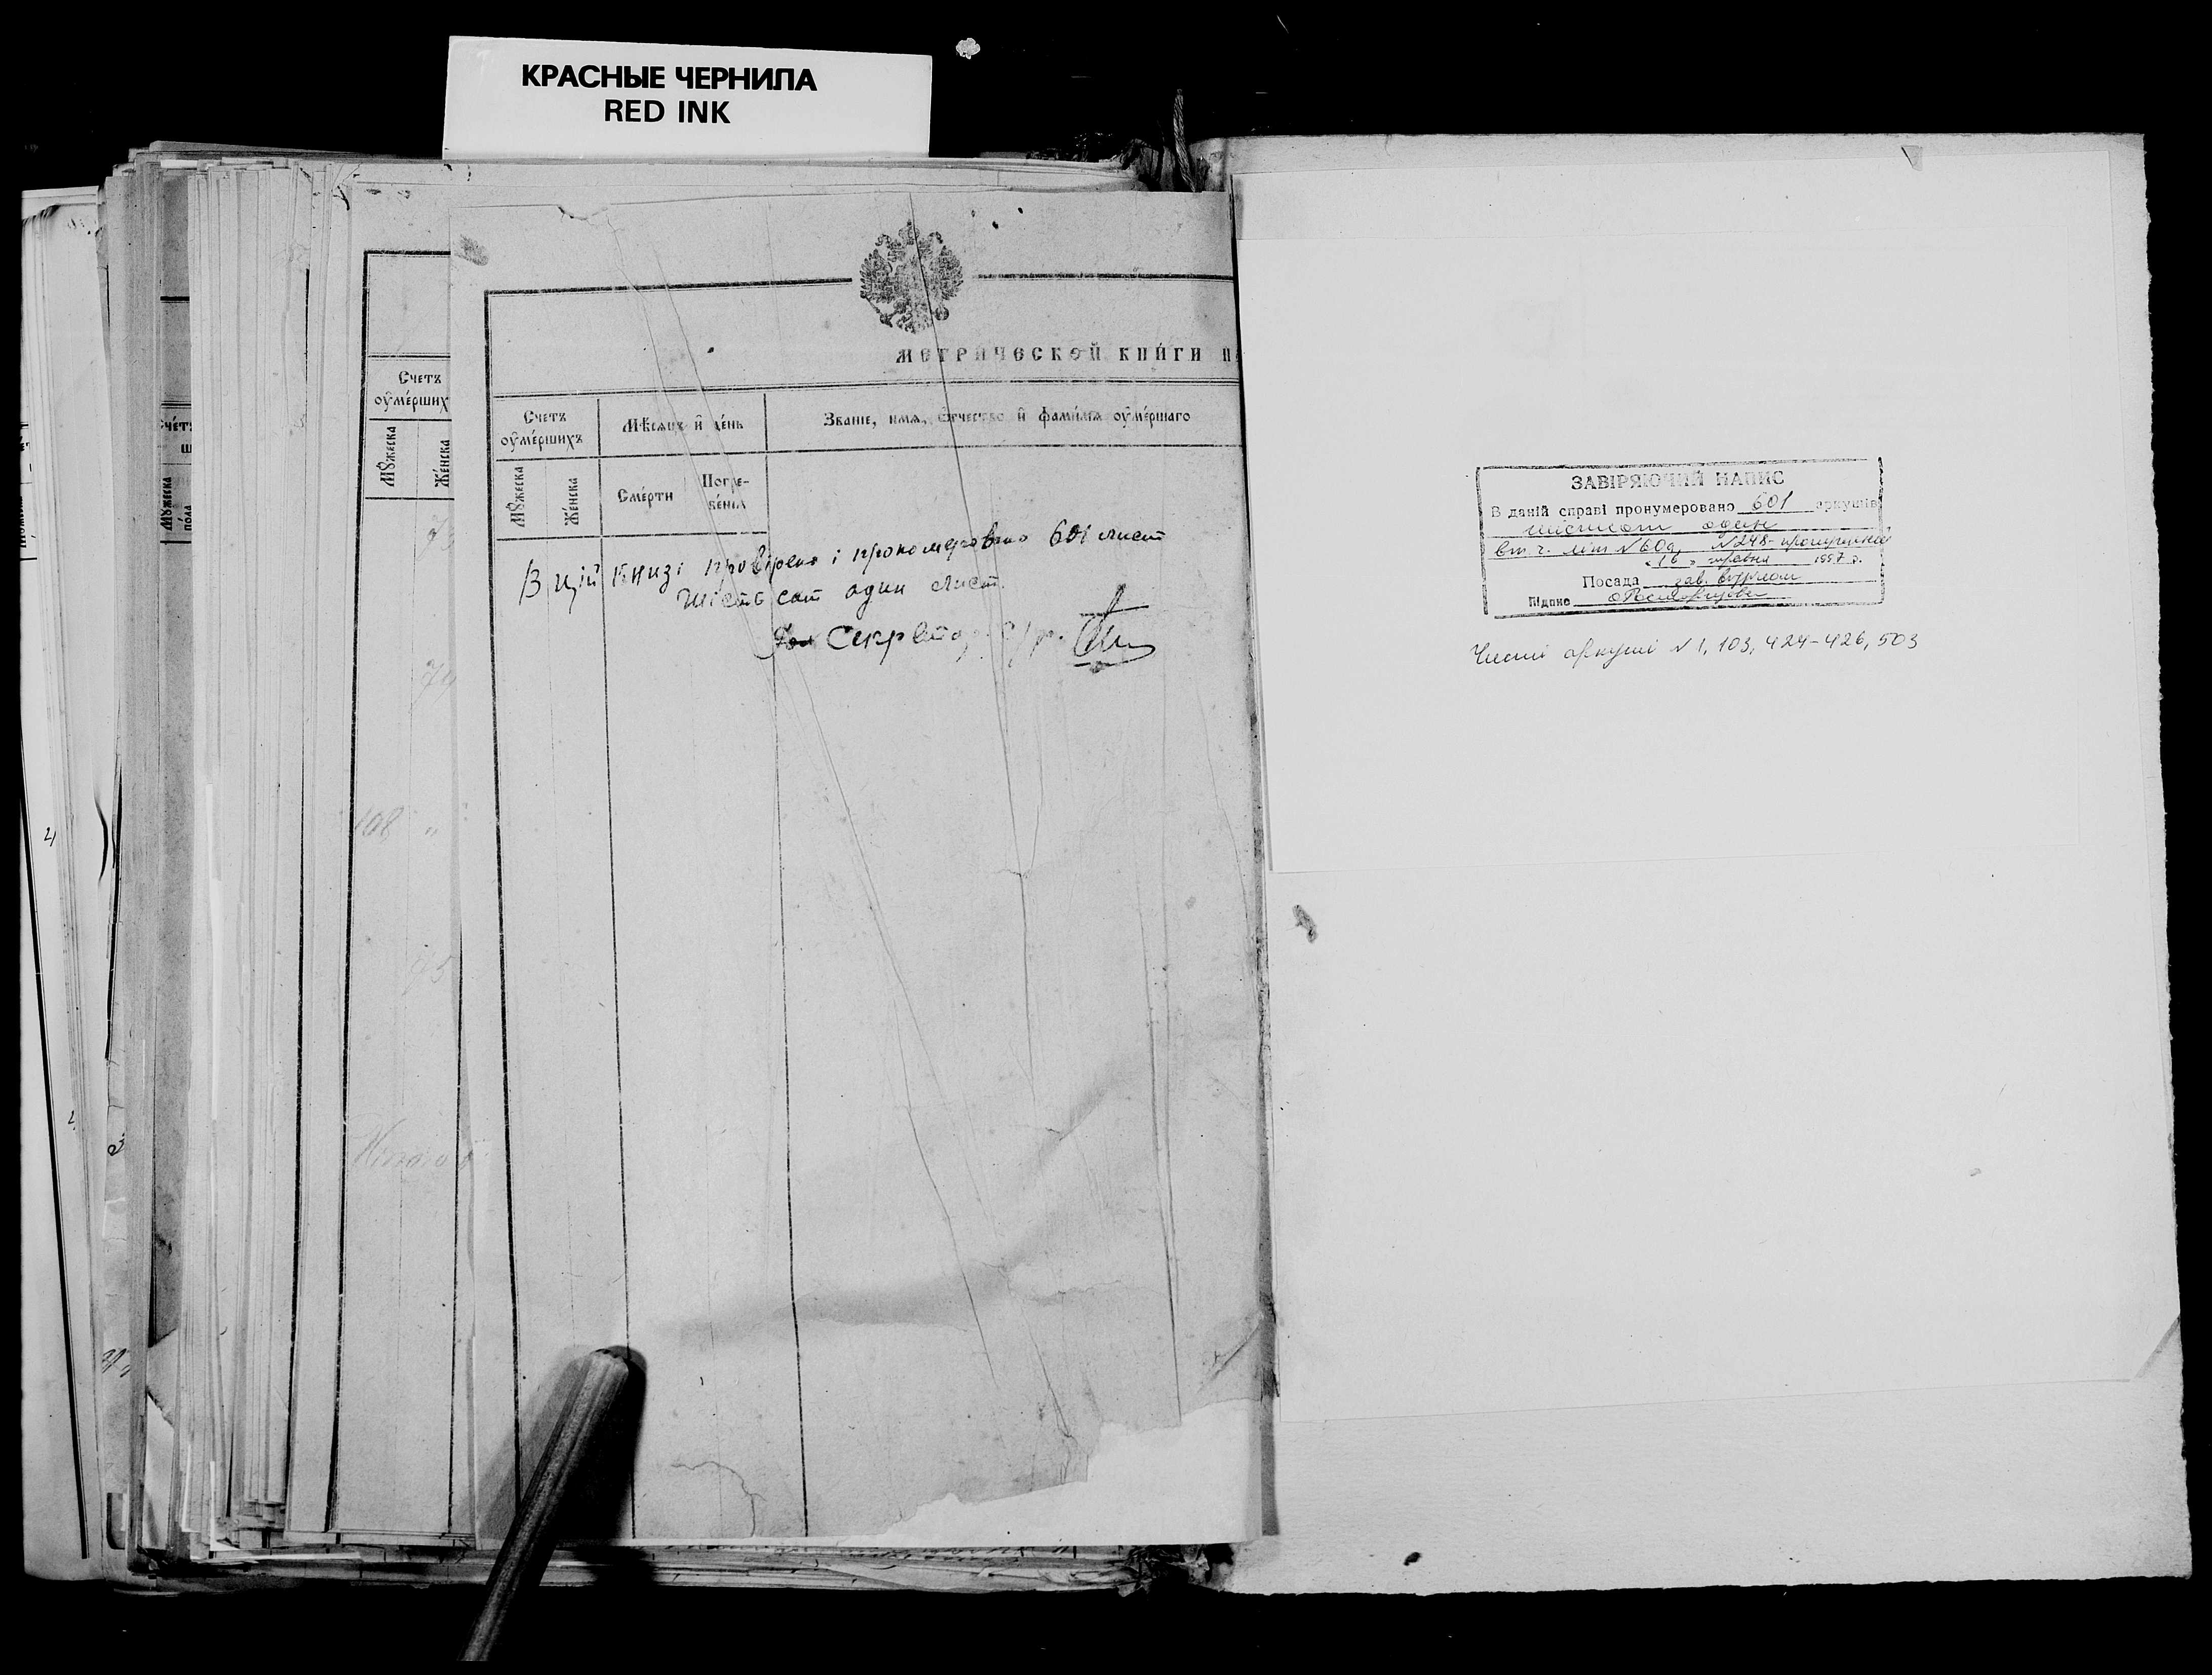 КРАСНЫЕ ЧЕРНИЛА
RED INK
Счетъ
оумершихъ
Мужеска
Женска
108 "
МЕТРИЧЕСКОЙ КНИГИ
Счетъ
оумершихъ
Мѣсяцъ и день
Званіе, имя, отчество и фамилія оумершаго
Мужеска
Женска
Смерти
Погре-
бенія
В цій книзі провірено і прономеровано 601 лист
Шістьсот один лист.
Секретар
ЗАВІРЯЮЧИЙ НАПИС
В даній справі пронумеровано 601 аркушів
шістсот один
в т. ч. літ N 60а, N 248- пропущений
"16" травня 1997 р.
Посада зав. відділом
Підпис
Чисті аркуші N 1, 103, 424-426, 503